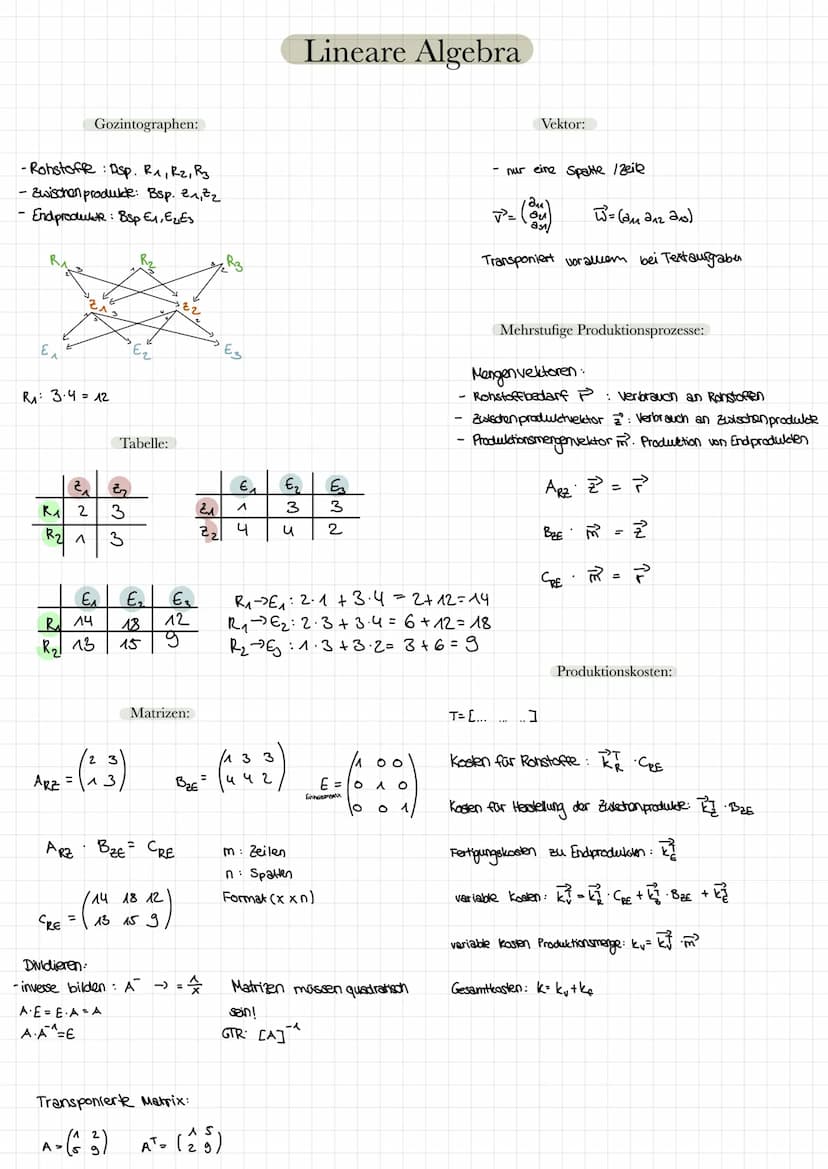 Lineare Algebra
Gozintographen:
- Rohstoffe : Bsp. R1, R2, R3
- Zwischenprodukte: Bsp. Z1, Z2
- Endprodukte : Bsp E1, E2 E3
R1 R2 R3
Z1 Z2
E1 E2 E3
R1: 3·4 = 12
Tabelle:
Z1 Z2
R1 2 3
R2 1 3
E1 E2 E3
Z1 1 3 3
Z2 4 4 2
E1 E2 E3
R1 14 18 12
R2 13 15 9
R1→E1 : 2·1 + 3·4 = 2+12 = 14
R1→E2 : 2·3 + 3·4 = 6 + 12 = 18
R2→E3 : 1·3 + 3·2 = 3 + 6 = 9
Matrizen:
ARZ = (2 3
1 3)
BZE = (1 3 3
4 4 2)
E = (1 0 0
0 1 0
0 0 1)
Einheitsmatrix
ARZ · BZE = CRE
m : Zeilen
n : Spalten
Format (x x n)
CRE = (14 18 12
13 15 9)
Dividieren:
- inverse bilden : A⁻ → = 1/x
A·E = E·A = A
A·A⁻¹ = E
Matrizen müssen quadratisch
sein!
GTR: [A]⁻¹
Transponierte Matrix:
A = (1 2
5 9)
Aᵀ = (1 5
2 9)
Vektor:
- nur eine Spalte / Zeile
v⃗ = (a11
a21
a31)
w⃗ = (a11 a12 a13)
Transponiert vorallem bei Textaufgaben
Mehrstufige Produktionsprozesse:
Mengenvektoren :
- Rohstoffbedarf r⃗ : Verbrauch an Rohstoffen
- Zwischenproduktvektor z⃗ : Verbrauch an Zwischenprodukte
- Produktionsmengenvektor m⃗ : Produktion von Endprodukten
ARZ · z⃗ = r⃗
BZE · m⃗ = z⃗
CRE · m⃗ = r⃗
Produktionskosten:
T = [... ... ..]
Kosten für Rohstoffe : k⃗Rᵀ · CRE
Kosten für Herstellung der Zwischenprodukte: k⃗Zᵀ · BZE
Fertigungskosten zu Endprodukten : k⃗Eᵀ
variable Kosten: k⃗vᵀ = k⃗Rᵀ · CRE + k⃗Zᵀ · BZE + k⃗Eᵀ
variable Kosten Produktionsmenge: kv = k⃗vᵀ · m⃗
Gesamtkosten: k = kv + kf